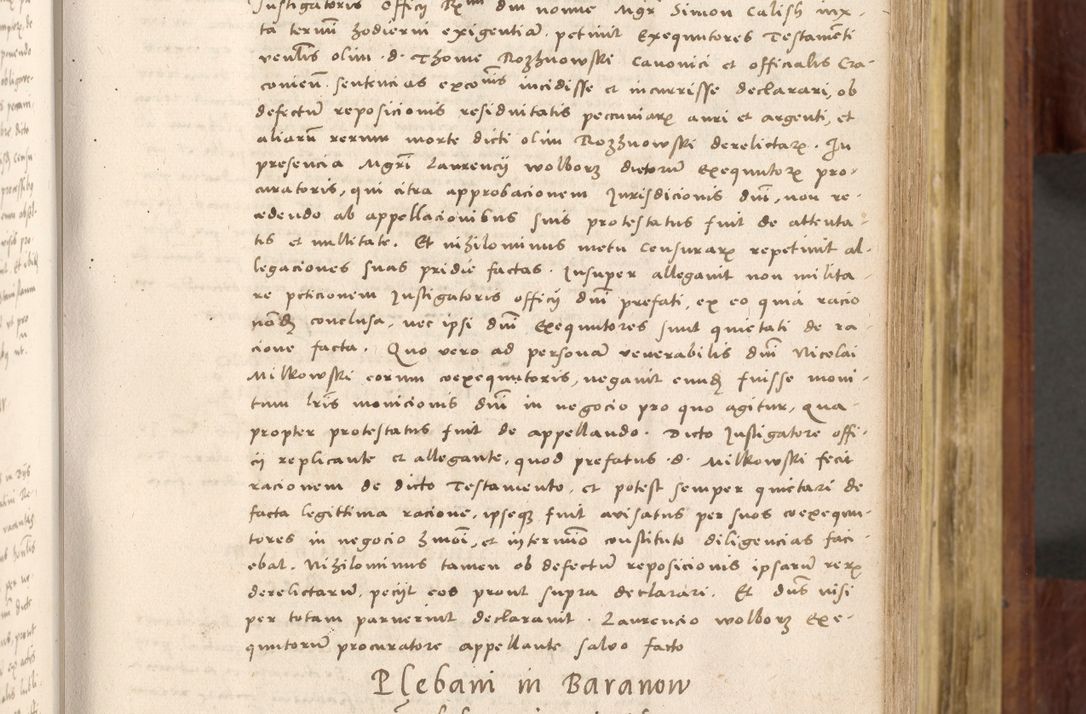 Instigatoris officij Rmi dni nomine Mgr Simon Calish iux-
ta termi hodierni exigentia, petiuit Exequutores Testamēti
venlis olim .d. Thome Rozhnowski Canonici et officialis Cra-
conien. sentencias excoīs incidisse et incurrisse declarari, ob
defectum reposicionis residuitatis peccuniarꝝ auri et argenti, et
aliarū rerum morte dicti olim Rozhnowski derelictarꝝ. In
presencia Mgri Laurencij wolborz dictorum Exequutorꝝ pro-
curatoris, qui citra approbacionem Jurisdicionis dni, non re-
cedendo ab appellacionibus suis protestatus fuit de attenta-
tis et nullitate. Et nihilominus metu Censurarꝝ repetiuit al-
legaciones suas pridie factas. Insuper allegauit non milita-
re peticionem Instigatoris officij dni prefati, ex eo quia racio
conclusa, nec ipsi dni Exequutores sunt quietati de ra-
cione facta. Quo vero ad personam venerabilis dni Nicolai
Milkowski eorum coexequutoris, negauit eundē fuisse moni-
tum lris monicionis dni in negocio pro quo agitur, qua-
propter protestatus fuit de appellando. Dicto Instigatore offi-
cij replicante et allegante, quod prefatus .d. Milkowski fecit
racionem de dicto Testamento, et potest semper quietari de
facta legittima racione, ipseqꝫ fuit auisatus per suos coexequu-
tores in negocio hmoi, et interimio constituto diligencias faci-
ebat. Nihilominus tamen ob defectum reposicionis ipsarum rerꝝ
derelictarum, peciit eos prout supra declarari. Et dns nisi
per totam paruerint declarauit. Laurencio wolborz Exe-
quutorum procuratore appellante saluo facto
Plebani in Baranow